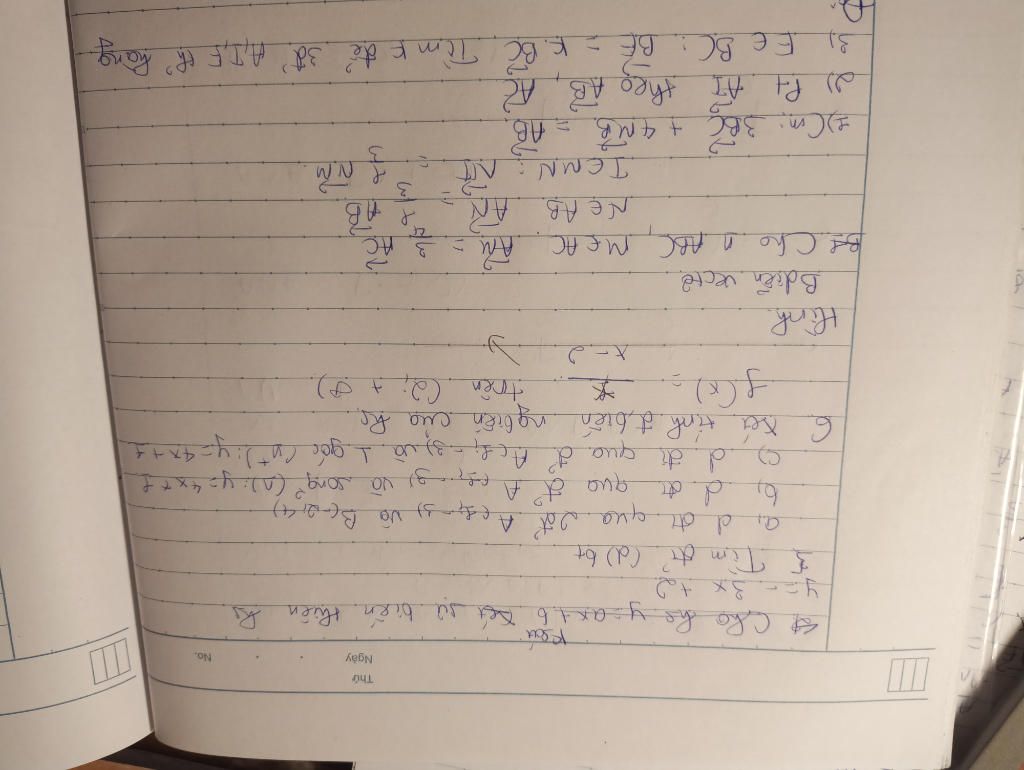 Thứ
Ngày
No.
4 Cho hs y = ax + b Xét sự biến thiên hs
y = -3x + 2
5 Tìm đt (d) bt
a, d đi qua 2đ A (1; -3) và B(-2; 4)
b, d đi qua đ A (1; -3) và song² (Δ): y = 4x + 1
c) d đi qua đ A (1; -3) và ⊥ góc (Δ): y = 4x + 1
6 Xét tính đ.biến, nghịch biến của hs
f(x) = x / (x - 2) trên (2; +∞)
Hình
B diễn vectơ
B1 Cho Δ ABC, M ∈ AC AM = 3/4 AC
N ∈ AB AN = 1/3 AB
I ∈ MN : NI = 1/3 NM
1) Cm: 3BC + 4MB = AB
2) Pt AI theo AB, AC
3) E ∈ BC : BE = k BC Tìm k để 3đ A, I, E th² hàng